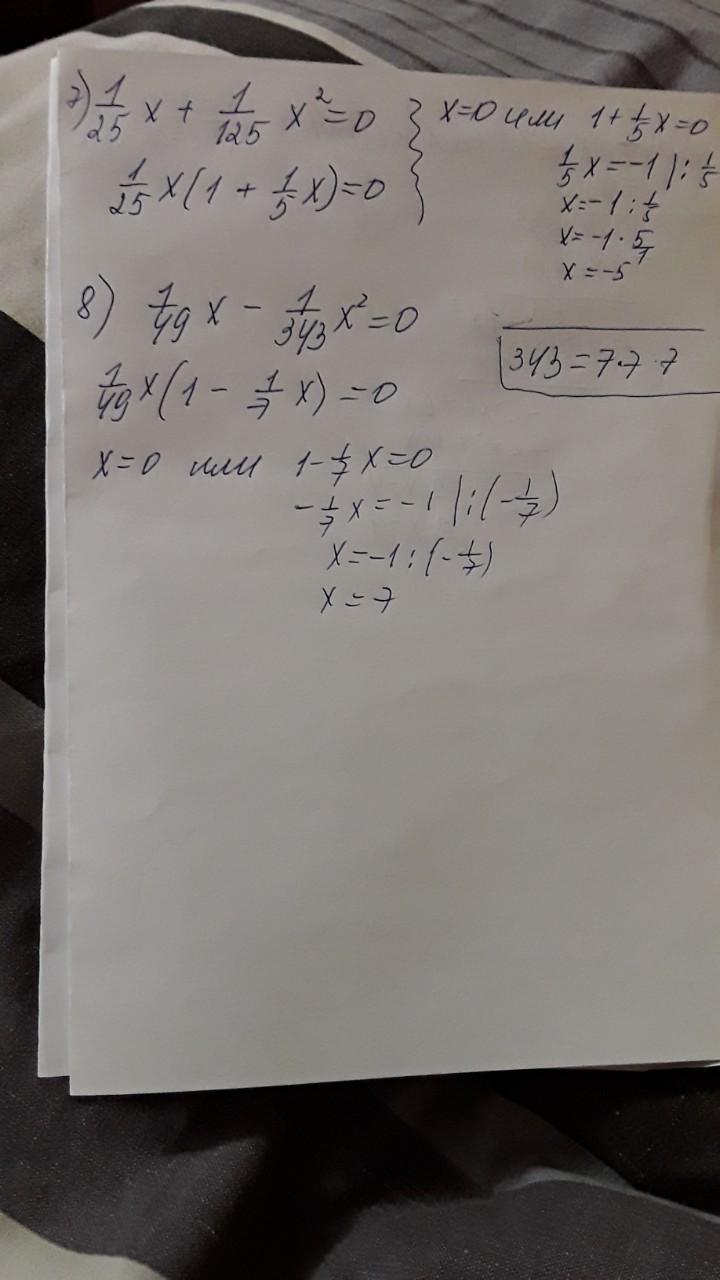 7) 1/25 x + 1/125 x² = 0
1/25 x(1 + 1/5 x) = 0
x=0 или 1 + 1/5 x = 0
1/5 x = -1 | : 1/5
x = -1 : 1/5
x = -1 · 5/1
x = -5
8) 1/49 x - 1/343 x² = 0
1/49 x(1 - 1/7 x) = 0
x=0 или 1 - 1/7 x = 0
-1/7 x = -1 | : (-1/7)
x = -1 : (-1/7)
x = 7
343 = 7·7·7